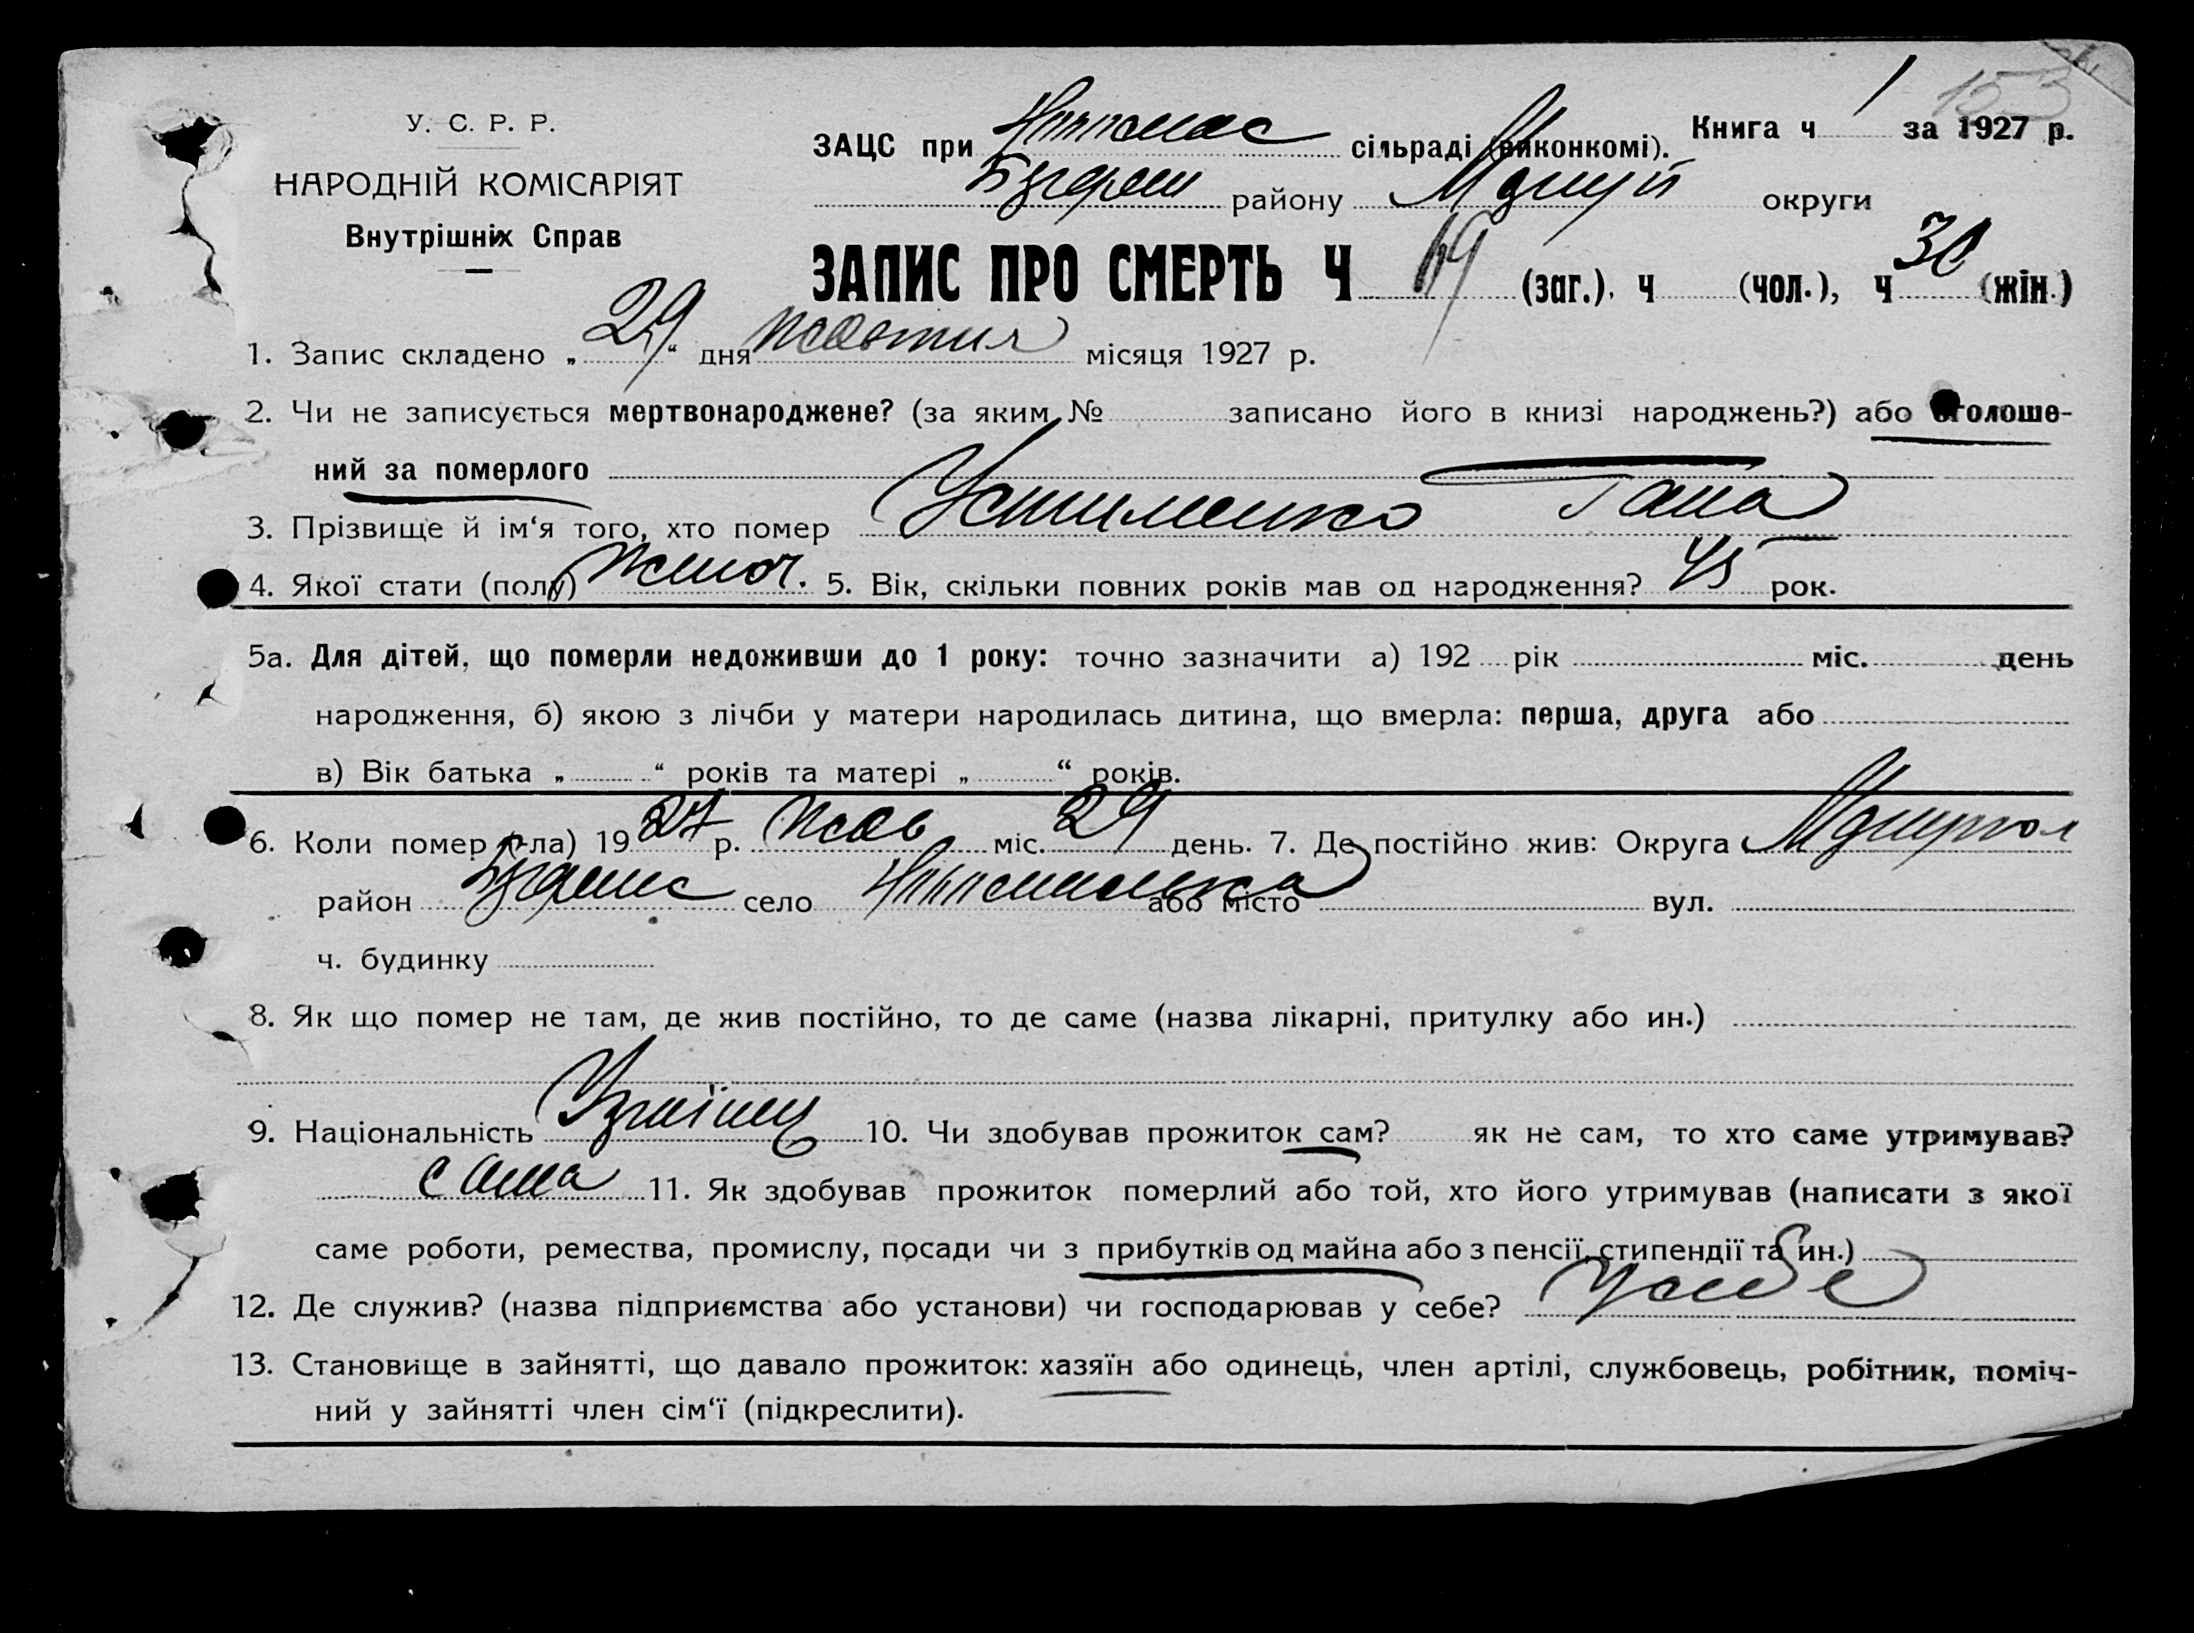 153
У. С. Р. Р.
НАРОДНІЙ КОМІСАРІЯТ
Внутрішніх Справ
ЗАЦС при сільраді (виконкомі). Книга ч 1 за 1927 р.
району округи
ЗАПИС ПРО СМЕРТЬ Ч (заг.), ч (чол.), ч 30 (жін.)
1. Запис складено „29“ дня жовтня місяця 1927 р.
2. Чи не записується мертвонароджене? (за яким № записано його в книзі народжень?) або оголоше-
ний за померлого
3. Прізвище й ім‘я того, хто помер Устименко Гана
4. Якої стати (полу) жіноч. 5. Вік, скільки повних років мав од народження? 45 рок.
5а. Для дітей, що померли недоживши до 1 року: точно зазначити а) 192 рік міс. день
народження, б) якою з лічби у матери народилась дитина, що вмерла: перша, друга або
в) Вік батька „ “ років та матері „ “ років.
6. Коли помер (-ла) 1927 р. жов міс. 29 день. 7. Де постійно жив: Округа
район село або місто вул.
ч. будинку
8. Як що помер не там, де жив постійно, то де саме (назва лікарні, притулку або ин.)
9. Національність 10. Чи здобував прожиток сам? як не сам, то хто саме утримував?
сама 11. Як здобував прожиток померлий або той, хто його утримував (написати з якої
саме роботи, ремества, промислу, посади чи з прибутків од майна або з пенсії, стипендії та ин.)
12. Де служив? (назва підприємства або установи) чи господарював у себе? у себе
13. Становище в зайнятті, що давало прожиток: хазяїн або одинець, член артілі, службовець, робітник, поміч-
ний у зайнятті член сім‘ї (підкреслити).